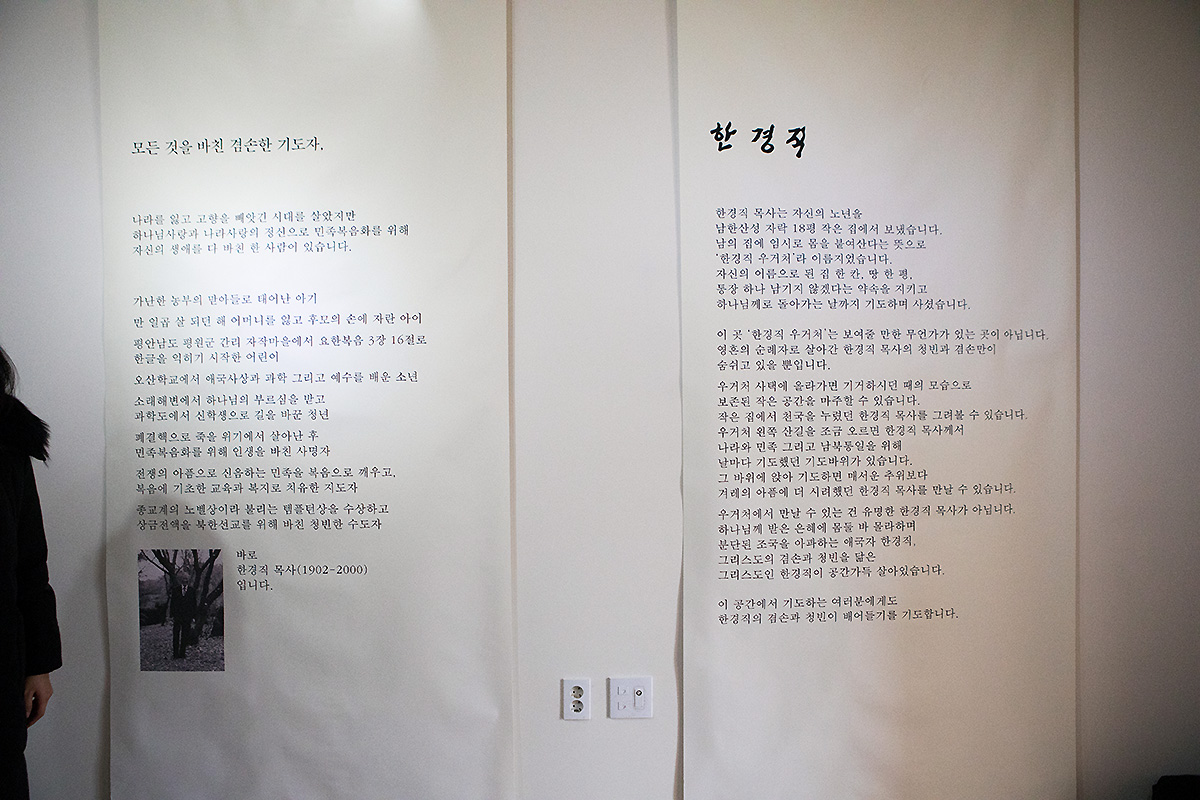 모든 것을 바친 겸손한 기도자,
나라를 잃고 고향을 빼앗긴 시대를 살았지만
하나님사랑과 나라사랑의 정신으로 민족복음화를 위해
자신의 생애를 다 바친 한 사람이 있습니다.
가난한 농부의 맏아들로 태어난 아기
만 일곱 살 되던 해 어머니를 잃고 후모의 손에 자란 아이
평안남도 평원군 간리 자작마을에서 요한복음 3장 16절로
한글을 익히기 시작한 어린이
오산학교에서 애국사상과 과학 그리고 예수를 배운 소년
소래해변에서 하나님의 부르심을 받고
과학도에서 신학생으로 길을 바꾼 청년
폐결핵으로 죽을 위기에서 살아난 후
민족복음화를 위해 인생을 바친 사명자
전쟁의 아픔으로 신음하는 민족을 복음으로 깨우고,
복음에 기초한 교육과 복지로 치유한 지도자
종교계의 노벨상이라 불리는 템플턴상을 수상하고
상금전액을 북한선교를 위해 바친 청빈한 수도자
바로
한경직 목사(1902-2000)
입니다.
한경직
한경직 목사는 자신의 노년을
남한산성 자락 18평 작은 집에서 보냈습니다.
남의 집에 임시로 몸을 붙여산다는 뜻으로
'한경직 우거처'라 이름지었습니다.
자신의 이름으로 된 집 한 칸, 땅 한 평,
통장 하나 남기지 않겠다는 약속을 지키고
하나님께로 돌아가는 날까지 기도하며 사셨습니다.
이 곳 '한경직 우거처'는 보여줄 만한 무언가가 있는 곳이 아닙니다.
영혼의 순례자로 살아간 한경직 목사의 청빈과 겸손만이
숨쉬고 있을 뿐입니다.
우거처 사택에 올라가면 기거하시던 때의 모습으로
보존된 작은 공간을 마주할 수 있습니다.
작은 집에서 천국을 누렸던 한경직 목사를 그려볼 수 있습니다.
우거처 왼쪽 산길을 조금 오르면 한경직 목사께서
나라와 민족 그리고 남북통일을 위해
날마다 기도했던 기도바위가 있습니다.
그 바위에 앉아 기도하면 매서운 추위보다
겨레의 아픔에 더 시려했던 한경직 목사를 만날 수 있습니다.
우거처에서 만날 수 있는 건 유명한 한경직 목사가 아닙니다.
하나님께 받은 은혜에 몸둘 바 몰라하며
분단된 조국을 아파하는 애국자 한경직,
그리스도의 겸손과 청빈을 닮은
그리스도인 한경직이 공간가득 살아있습니다.
이 공간에서 기도하는 여러분에게도
한경직의 겸손과 청빈이 배어들기를 기도합니다.